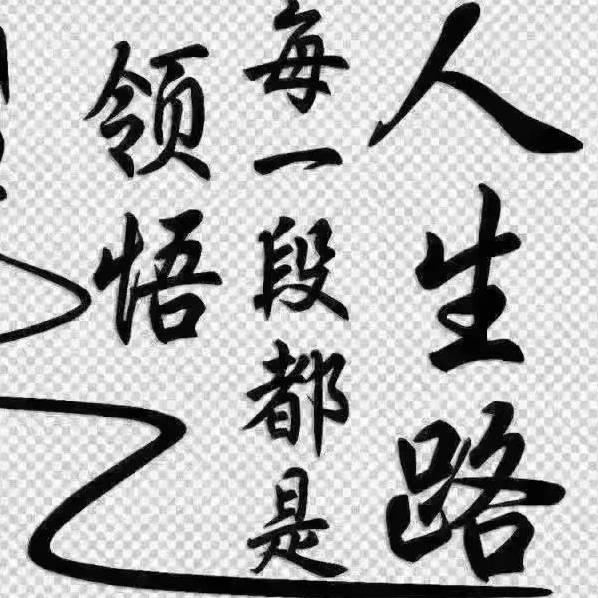 人生路
每一段都是
领悟